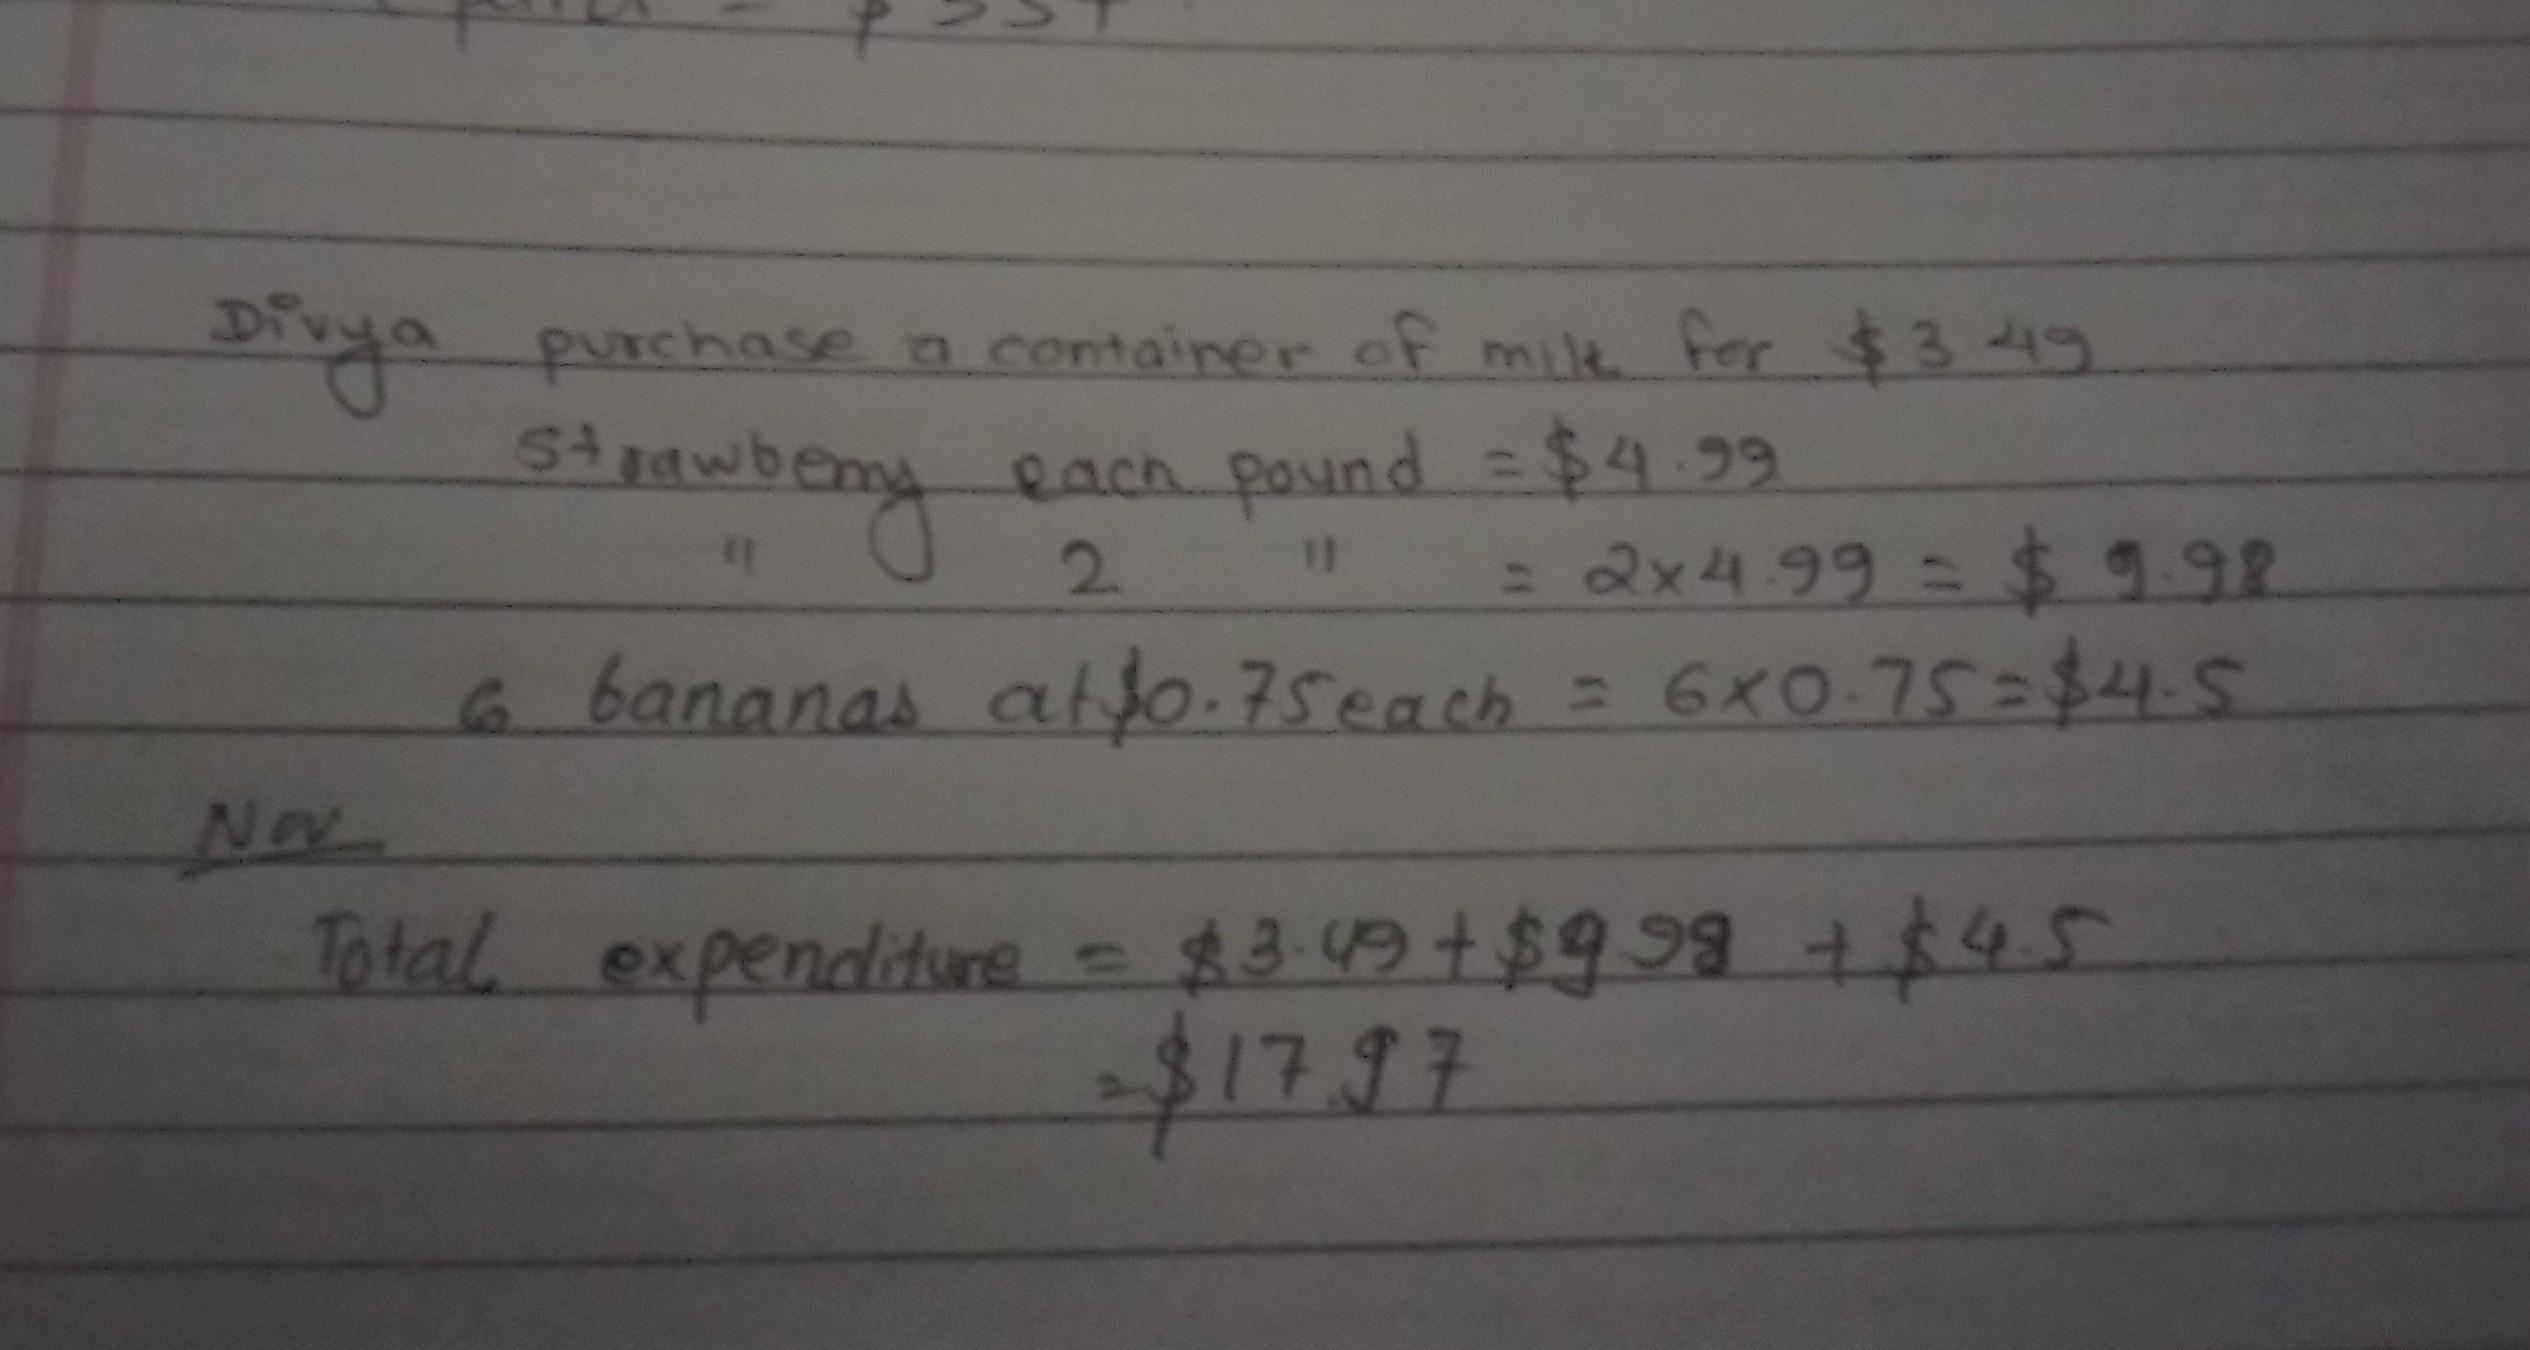 Divya purchase a container of milk for $3.49
Strawberry each pound = $4.99
" 2 " = 2x4.99 = $ 9.98
6 bananas at $0.75 each = 6x0.75 = $4.5
Now
Total expenditure = $3.49 + $9.98 + $4.5
= $17.97